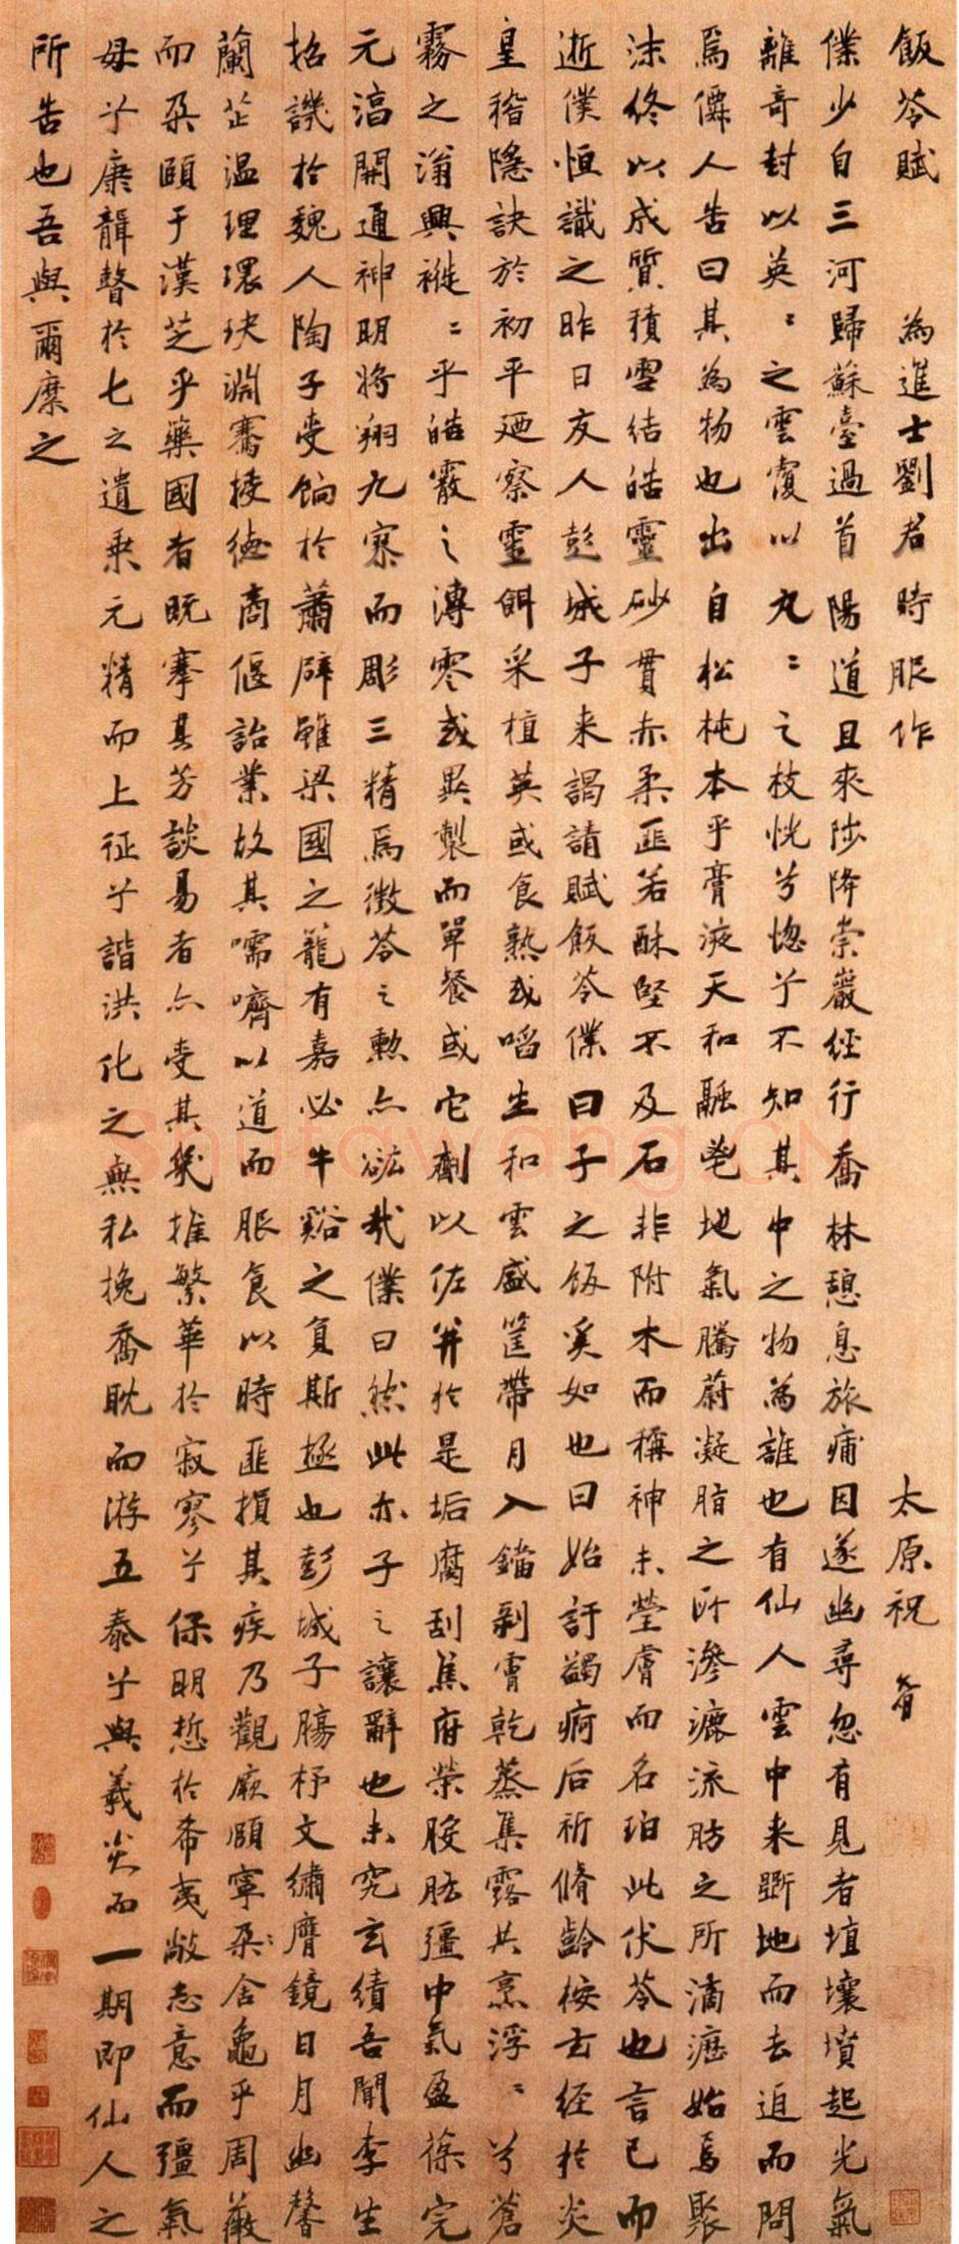 飯苓賦 為進士劉君時服作 太原祝
僕少自三河歸蘇臺過首陽道且來陟降崇巖經行喬林憩息旅痡因遂幽尋忽有見者埴壤墳起光氣
離奇封以英〻之雲覆以丸〻之枝恍兮惚兮不知其中之物為誰也有仙人雲中來斲地而去迫而問
焉僊人告曰其為物也出自松杶本乎膏液天和融鬯地氣騰蔚凝脂之所滲漉流肪之所滴瀝始焉聚
沫終以成質積雪結皓靈砂貫赤柔匪若酥堅不及石非附木而稱神未瑩膚而名珀此伏苓也言已而
逝僕恒識之昨日友人彭城子來謁請賦飯苓僕曰子之飯奚如也曰始訏蠲痾后祈脩齡桉玄經於炎
皇稽隱訣於初平廼察靈餌采植英或食熟或啗生和雲盛筐帶月入鐺剝膏乾蒸集露共烹浮〻兮蒼
霧之滃興褷〻乎皓霰之漙零或異製而單餐或它劑以佐并於是垢腐刮焦府榮胺胠彊中氣盈葆完
元滈開通神明將翔九寮而彫三精焉徵苓之勲亦䜪哉僕曰然此亦子之讓辭也未究玄績吾聞李生
招譏於魏人陶子受餉於蕭辟雖梁國之籠有嘉必牛谿之負斯極也彭城子腸杼文繡膺鏡日月幽馨
蘭芷温理環玦淵騫捿德商偃詒業故其嚅嚌以道而服食以時匪損其疾乃觀厥頤寧朵〻舍龜乎周薇
而朵頤于漢芝乎藥國者既搴其芳談易者亦受其幾推繁華於寂寥兮保明悊於希夷敞志意而彊氣
母兮康韻聱於七之遺乘元精而上征兮諧洪化之無私挽喬耽而游五泰兮與羲炎而一期即仙人之
所告也吾與爾麋之
SHuTowang.CN